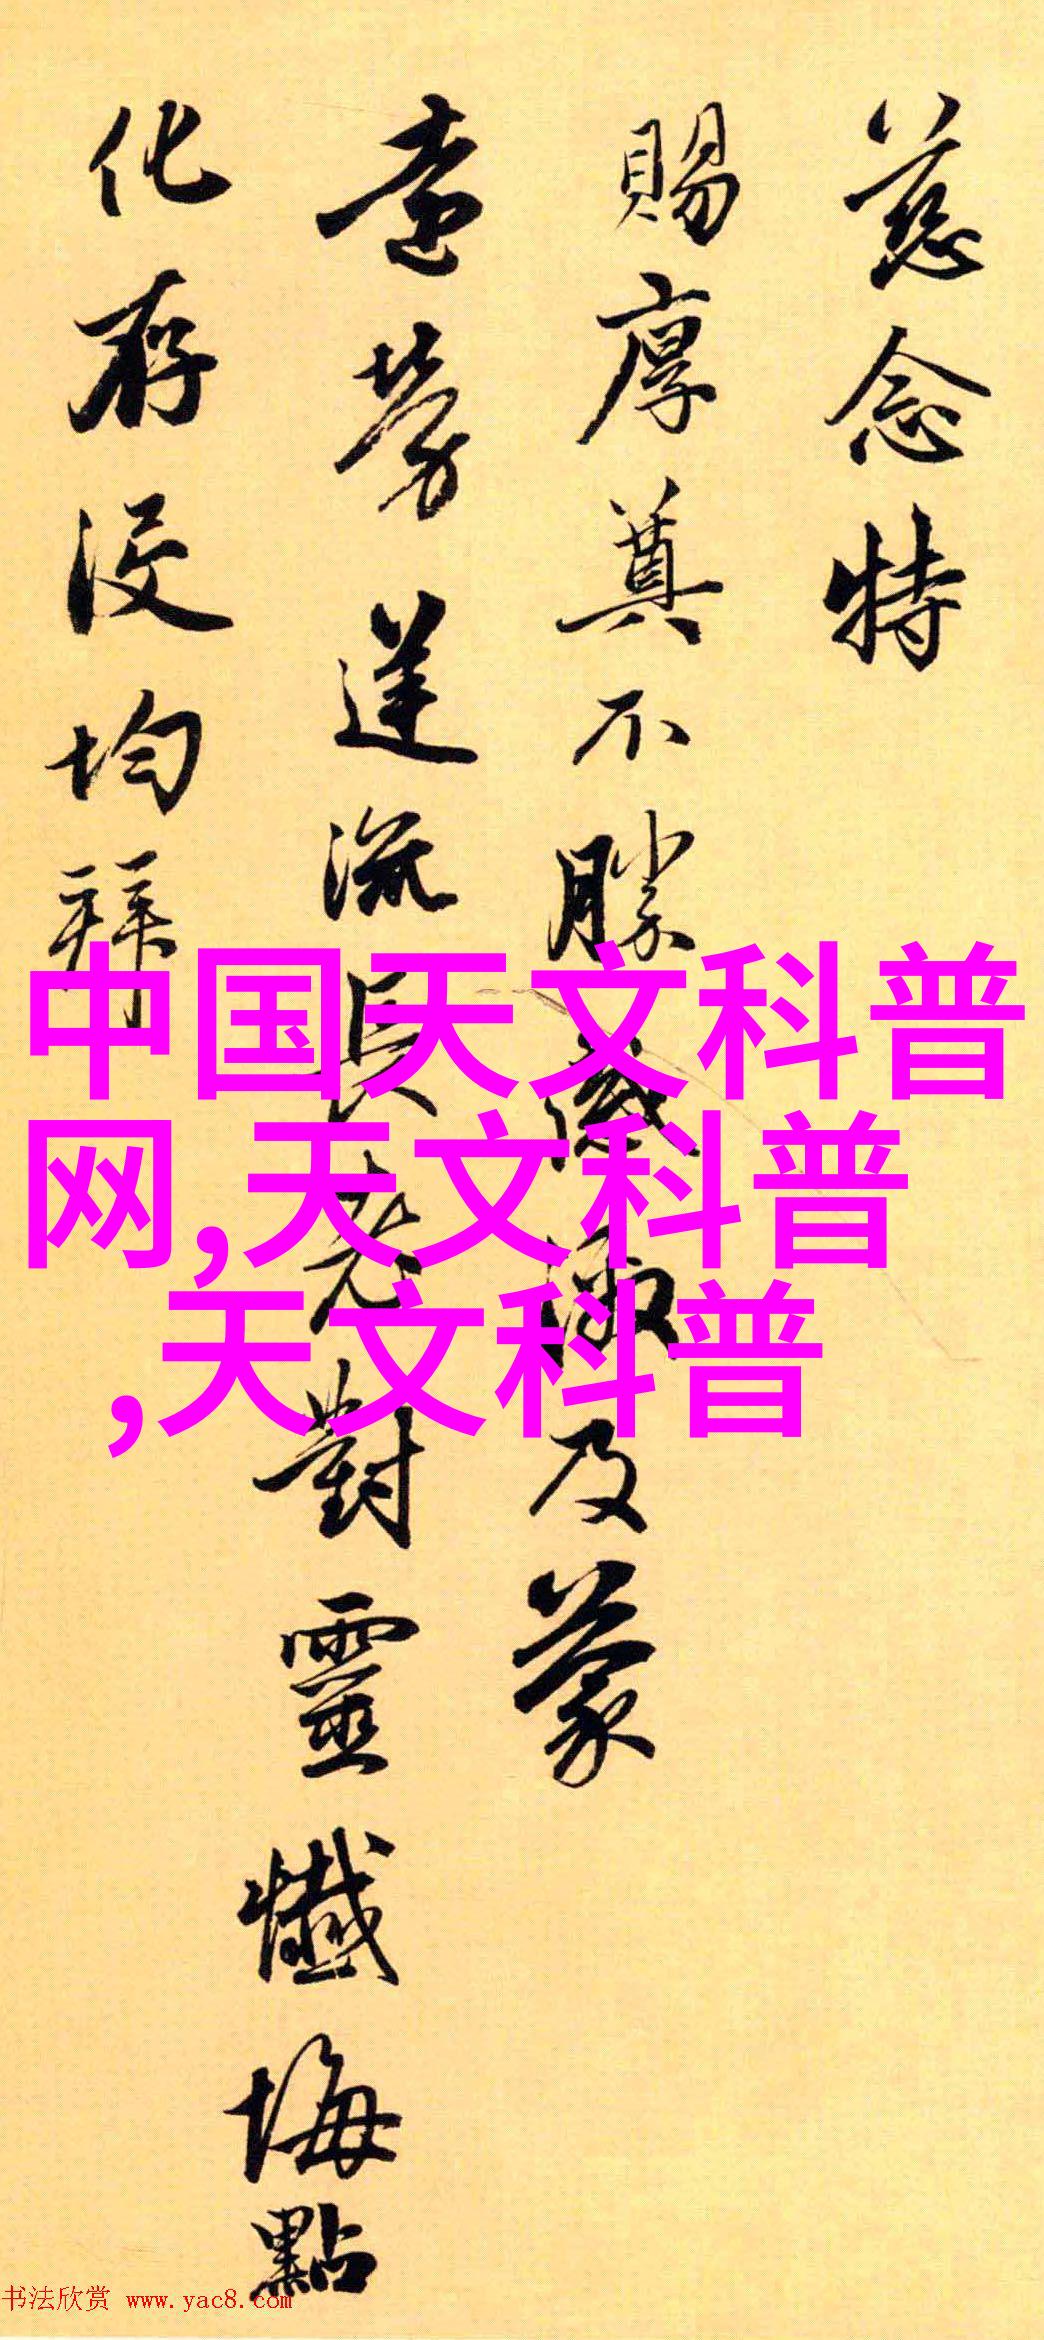 慈念特
賜厚奠不勝感激及蒙
遠勞蓬流長老對靈懺悔點
化存没均拜
中国天文科普
网,天文科普
,天文科普
书法欣赏 www.yac8.com